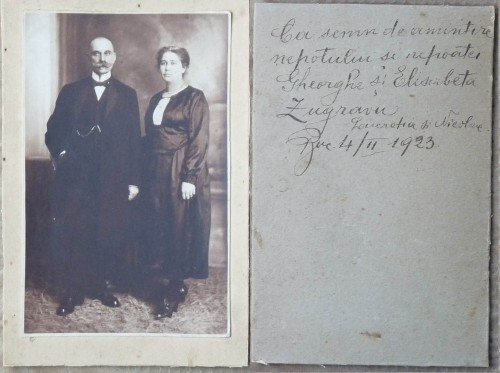 Ca semn de amintire
nepotului si nepoatei
Gheorghe și Elisabeta
Zugravu
Lucreția si Nicolae
Buc 4/II 1923